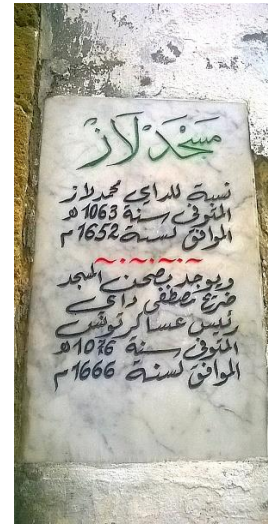 مسجد لاز
نسبة للداي محمد لاز
المتوفى سنة 1063 هـ
الموافق لسنة 1652 م
ويوجد بصحن المسجد
ضريح مصطفى داي
رئيس عساكر تونس
المتوفى سنة 1076 هـ
الموافق لسنة 1666 م